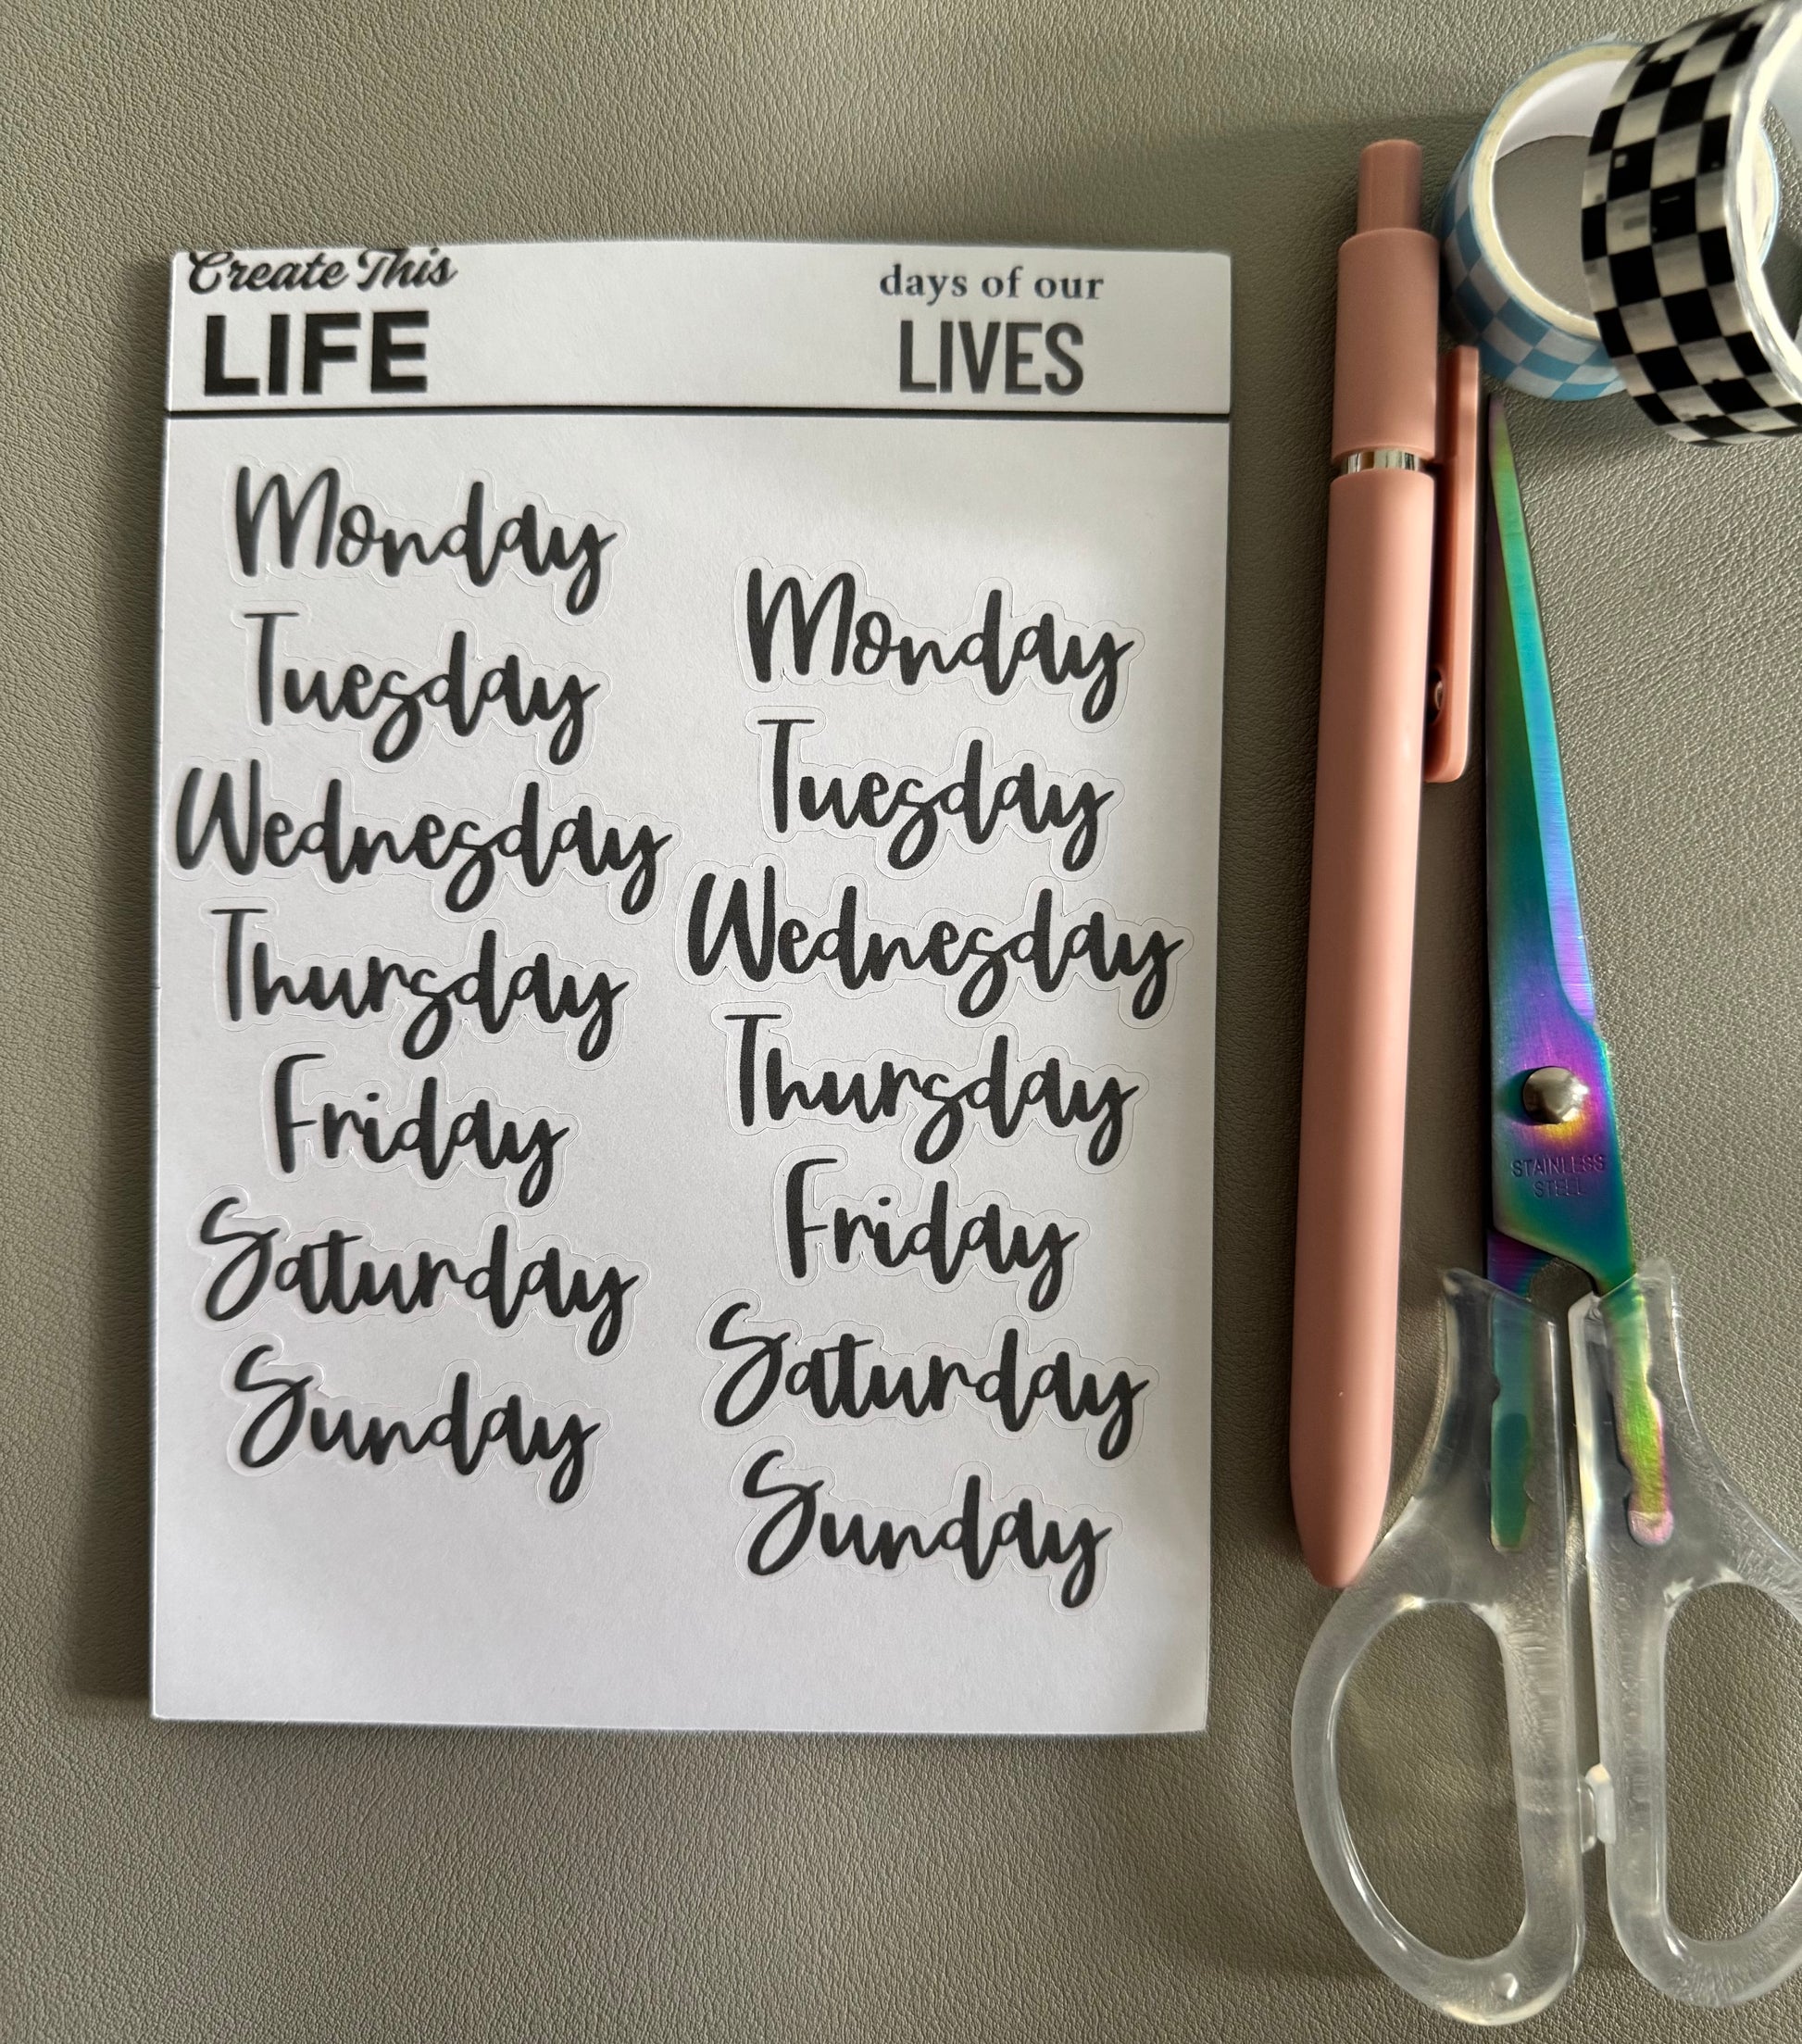 Create This
LIFE
days of our
LIVES
Monday
Tuesday
Wednesday
Thursday
Friday
Saturday
Sunday
Monday
Tuesday
Wednesday
Thursday
Friday
Saturday
Sunday
STAINLESS
STEEL